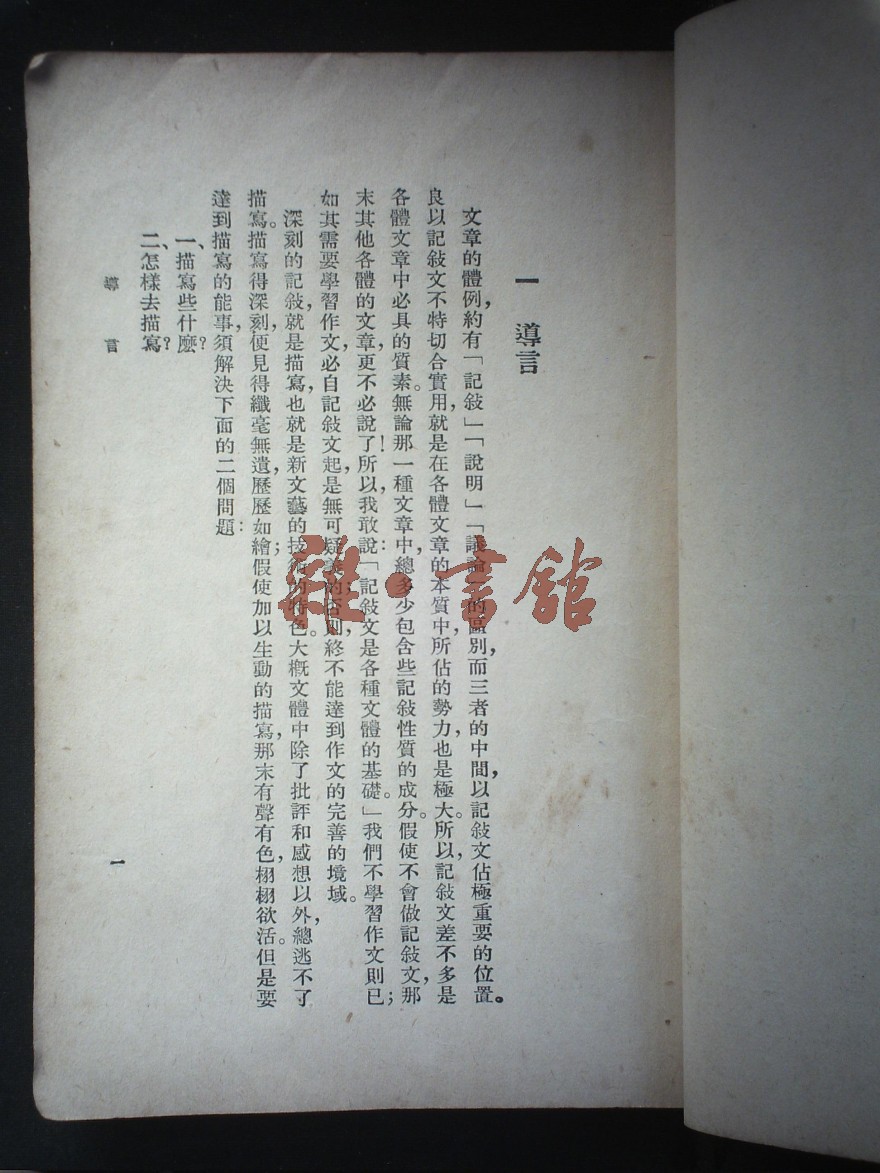 一　導言
文章的體例，約有「記敍」「說明」「議論」的區別，而三者的中間，以記敍文佔極重要的位置。
良以記敍文不特切合實用，就是在各體文章的本質中，所佔的勢力，也是極大。所以，記敍文差不多是
各體文章中必具的質素。無論那一種文章中，總多少包含些記敍性質的成分。假使不會做記敍文，那
末其他各體的文章，更不必說了！所以，我敢說：「記敍文是各種文體的基礎。」我們不學習作文則已；
如其需要學習作文，必自記敍文起，是無可疑義的；否則，終不能達到作文的完善的境域。
深刻的記敍，就是描寫，也就是新文藝的技術的特色。大概文體中除了批評和感想以外，總逃不了
描寫。描寫得深刻，便見得纖毫無遺，歷歷如繪；假使加以生動的描寫，那末有聲有色，栩栩欲活。但是要
達到描寫的能事，須解決下面的二個問題：
一、描寫些什麼？
二、怎樣去描寫？
導言
一
雜·書館